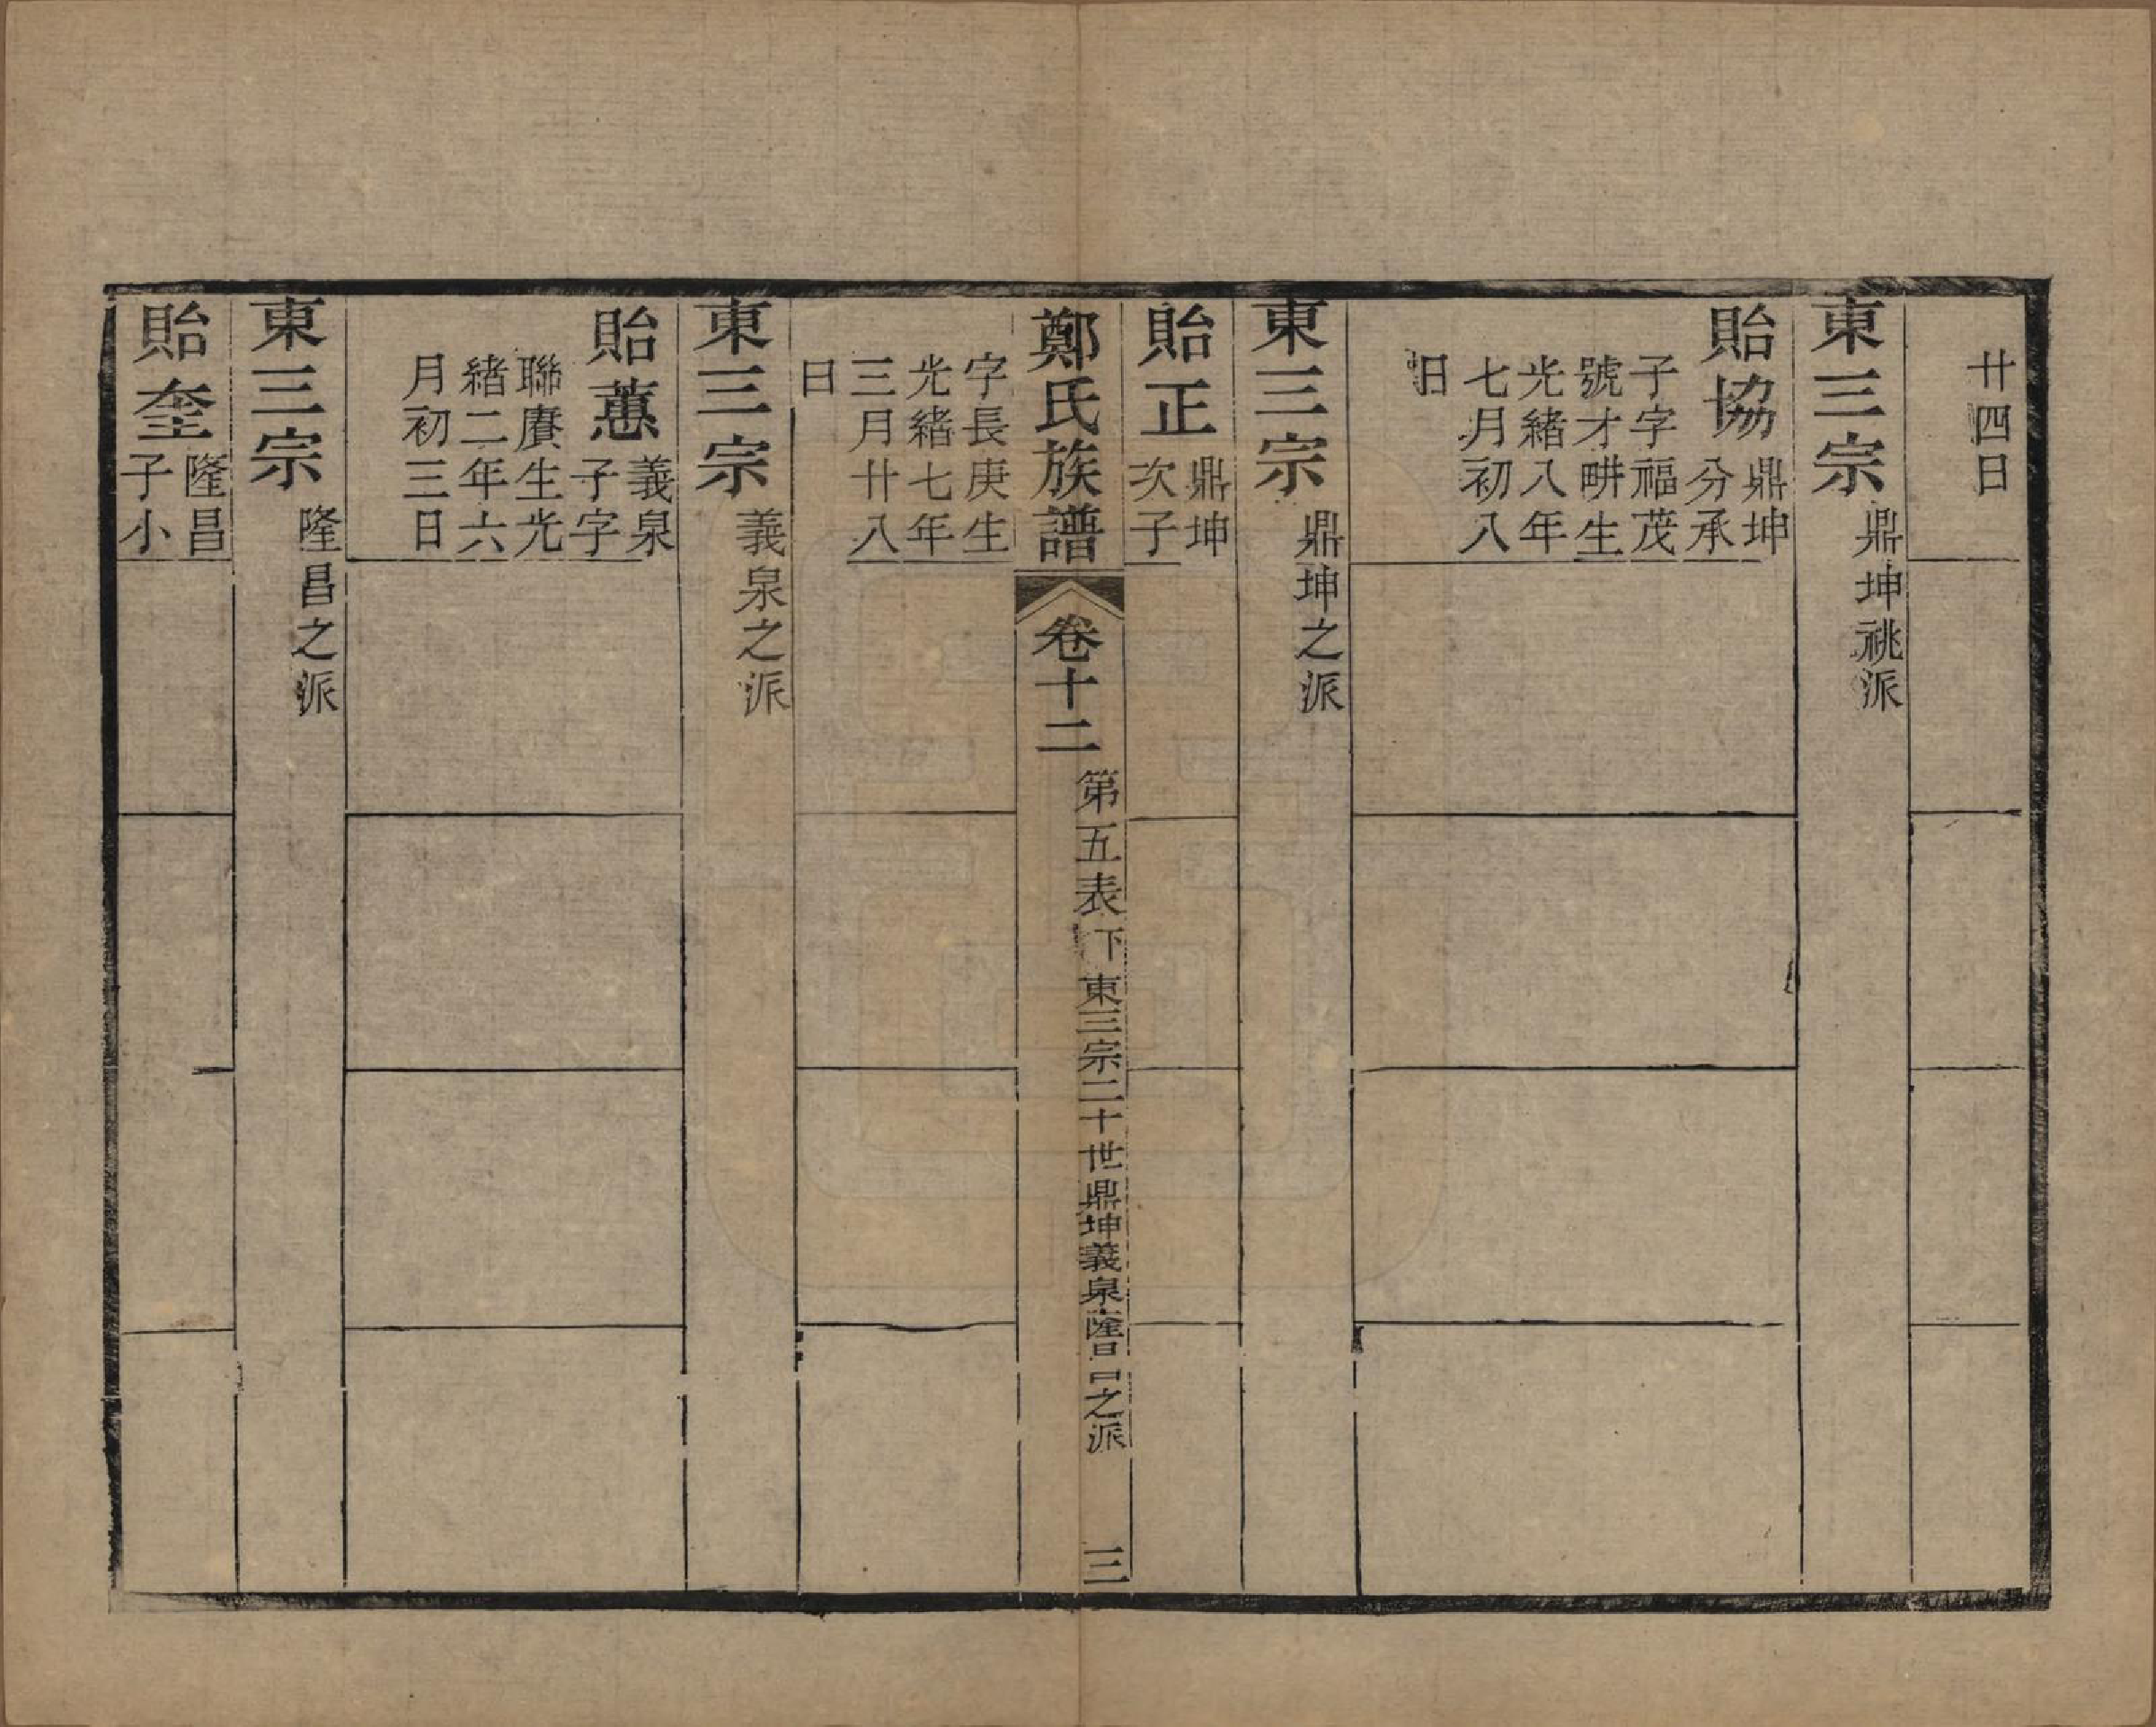 廿四日
東三宗 鼎坤祧派
貽協 鼎坤
分承
子字福茂
號才畊生
光緒八年
七月初八
日
東三宗 鼎坤之派
貽正 鼎坤
次子
鄭氏族譜 卷十二 第五表下 東三宗二十世鼎坤義泉隆昌之派 三
字長庚生
光緒七年
三月廿八
日
東三宗 義泉之派
貽蕙 義泉
子字
聯賡生光
緒二年六
月初三日
東三宗 隆昌之派
貽奎 隆昌
子小